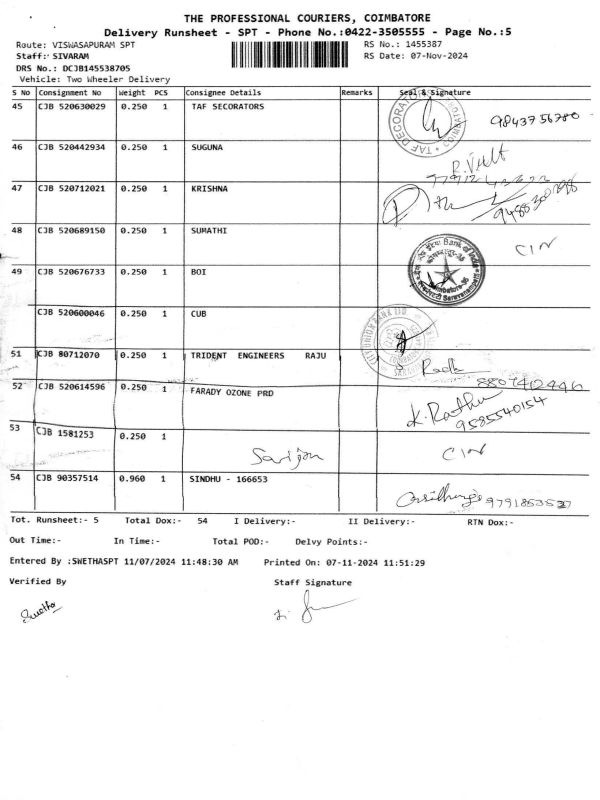 THE PROFESSIONAL COURIERS, COIMBATORE
Delivery Runsheet - SPT - Phone No.:0422-3505555 - Page No.:5
Route: VISWASAPURAM SPT RS No.: 1455387
Staff: SIVARAM RS Date: 07-Nov-2024
DRS No.: DCJB145538705
Vehicle: Two Wheeler Delivery
S No Consignment No Weight PCS Consignee Details Remarks Seal & Signature
45 CJB 520630029 0.250 1 TAF SECORATORS 9843756780
46 CJB 520442934 0.250 1 SUGUNA
47 CJB 520712021 0.250 1 KRISHNA
48 CJB 520689150 0.250 1 SUMATHI
49 CJB 520676733 0.250 1 BOI
CJB 520600046 0.250 1 CUB
51 CJB 80712070 0.250 1 TRIDENT ENGINEERS RAJU
52 CJB 520614596 0.250 1 FARADY OZONE PRD K. Rathu
9585540154
53 CJB 1581253 0.250 1
54 CJB 90357514 0.960 1 SINDHU - 166653
Tot. Runsheet:- 5 Total Dox:- 54 I Delivery:- II Delivery:- RTN Dox:-
Out Time:- In Time:- Total POD:- Delvy Points:-
Entered By :SWETHASPT 11/07/2024 11:48:30 AM Printed On: 07-11-2024 11:51:29
Verified By Staff Signature
Swetha